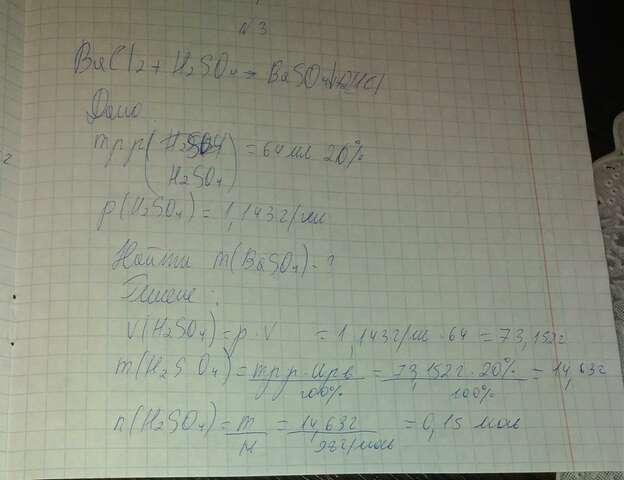 N 3
BaCl2 + H2SO4 → BaSO4↓ + 2HCl
Дано
mрр(H2SO4
H2SO4) = 64 мл 20%
p(H2SO4) = 1,143 г/мл
Найти m(BaSO4) - ?
Решение :
V(H2SO4) = p · V = 1,143 г/мл · 64 = 73,152 г
m(H2SO4) = mрр · ωрв / 100% = 73,152 г · 20% / 100% = 14,63 г
n(H2SO4) = m / M = 14,63 г / 98 г/моль = 0,15 моль